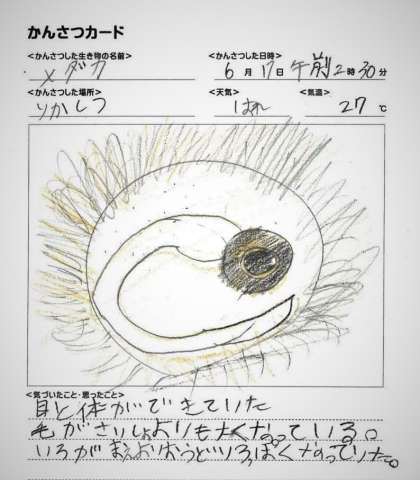 かんさつカード
<かんさつした生き物の名前> <かんさつした日時>
メダカ 6月17日 午前2時30分
<かんさつした場所> <天気> <気温>
りかしつ はれ 27℃
<気づいたこと・思ったこと>
目と体ができていた
毛がさいしょよりも大くなっている。
いろがまえよりおうどいろっぽくなっていた。